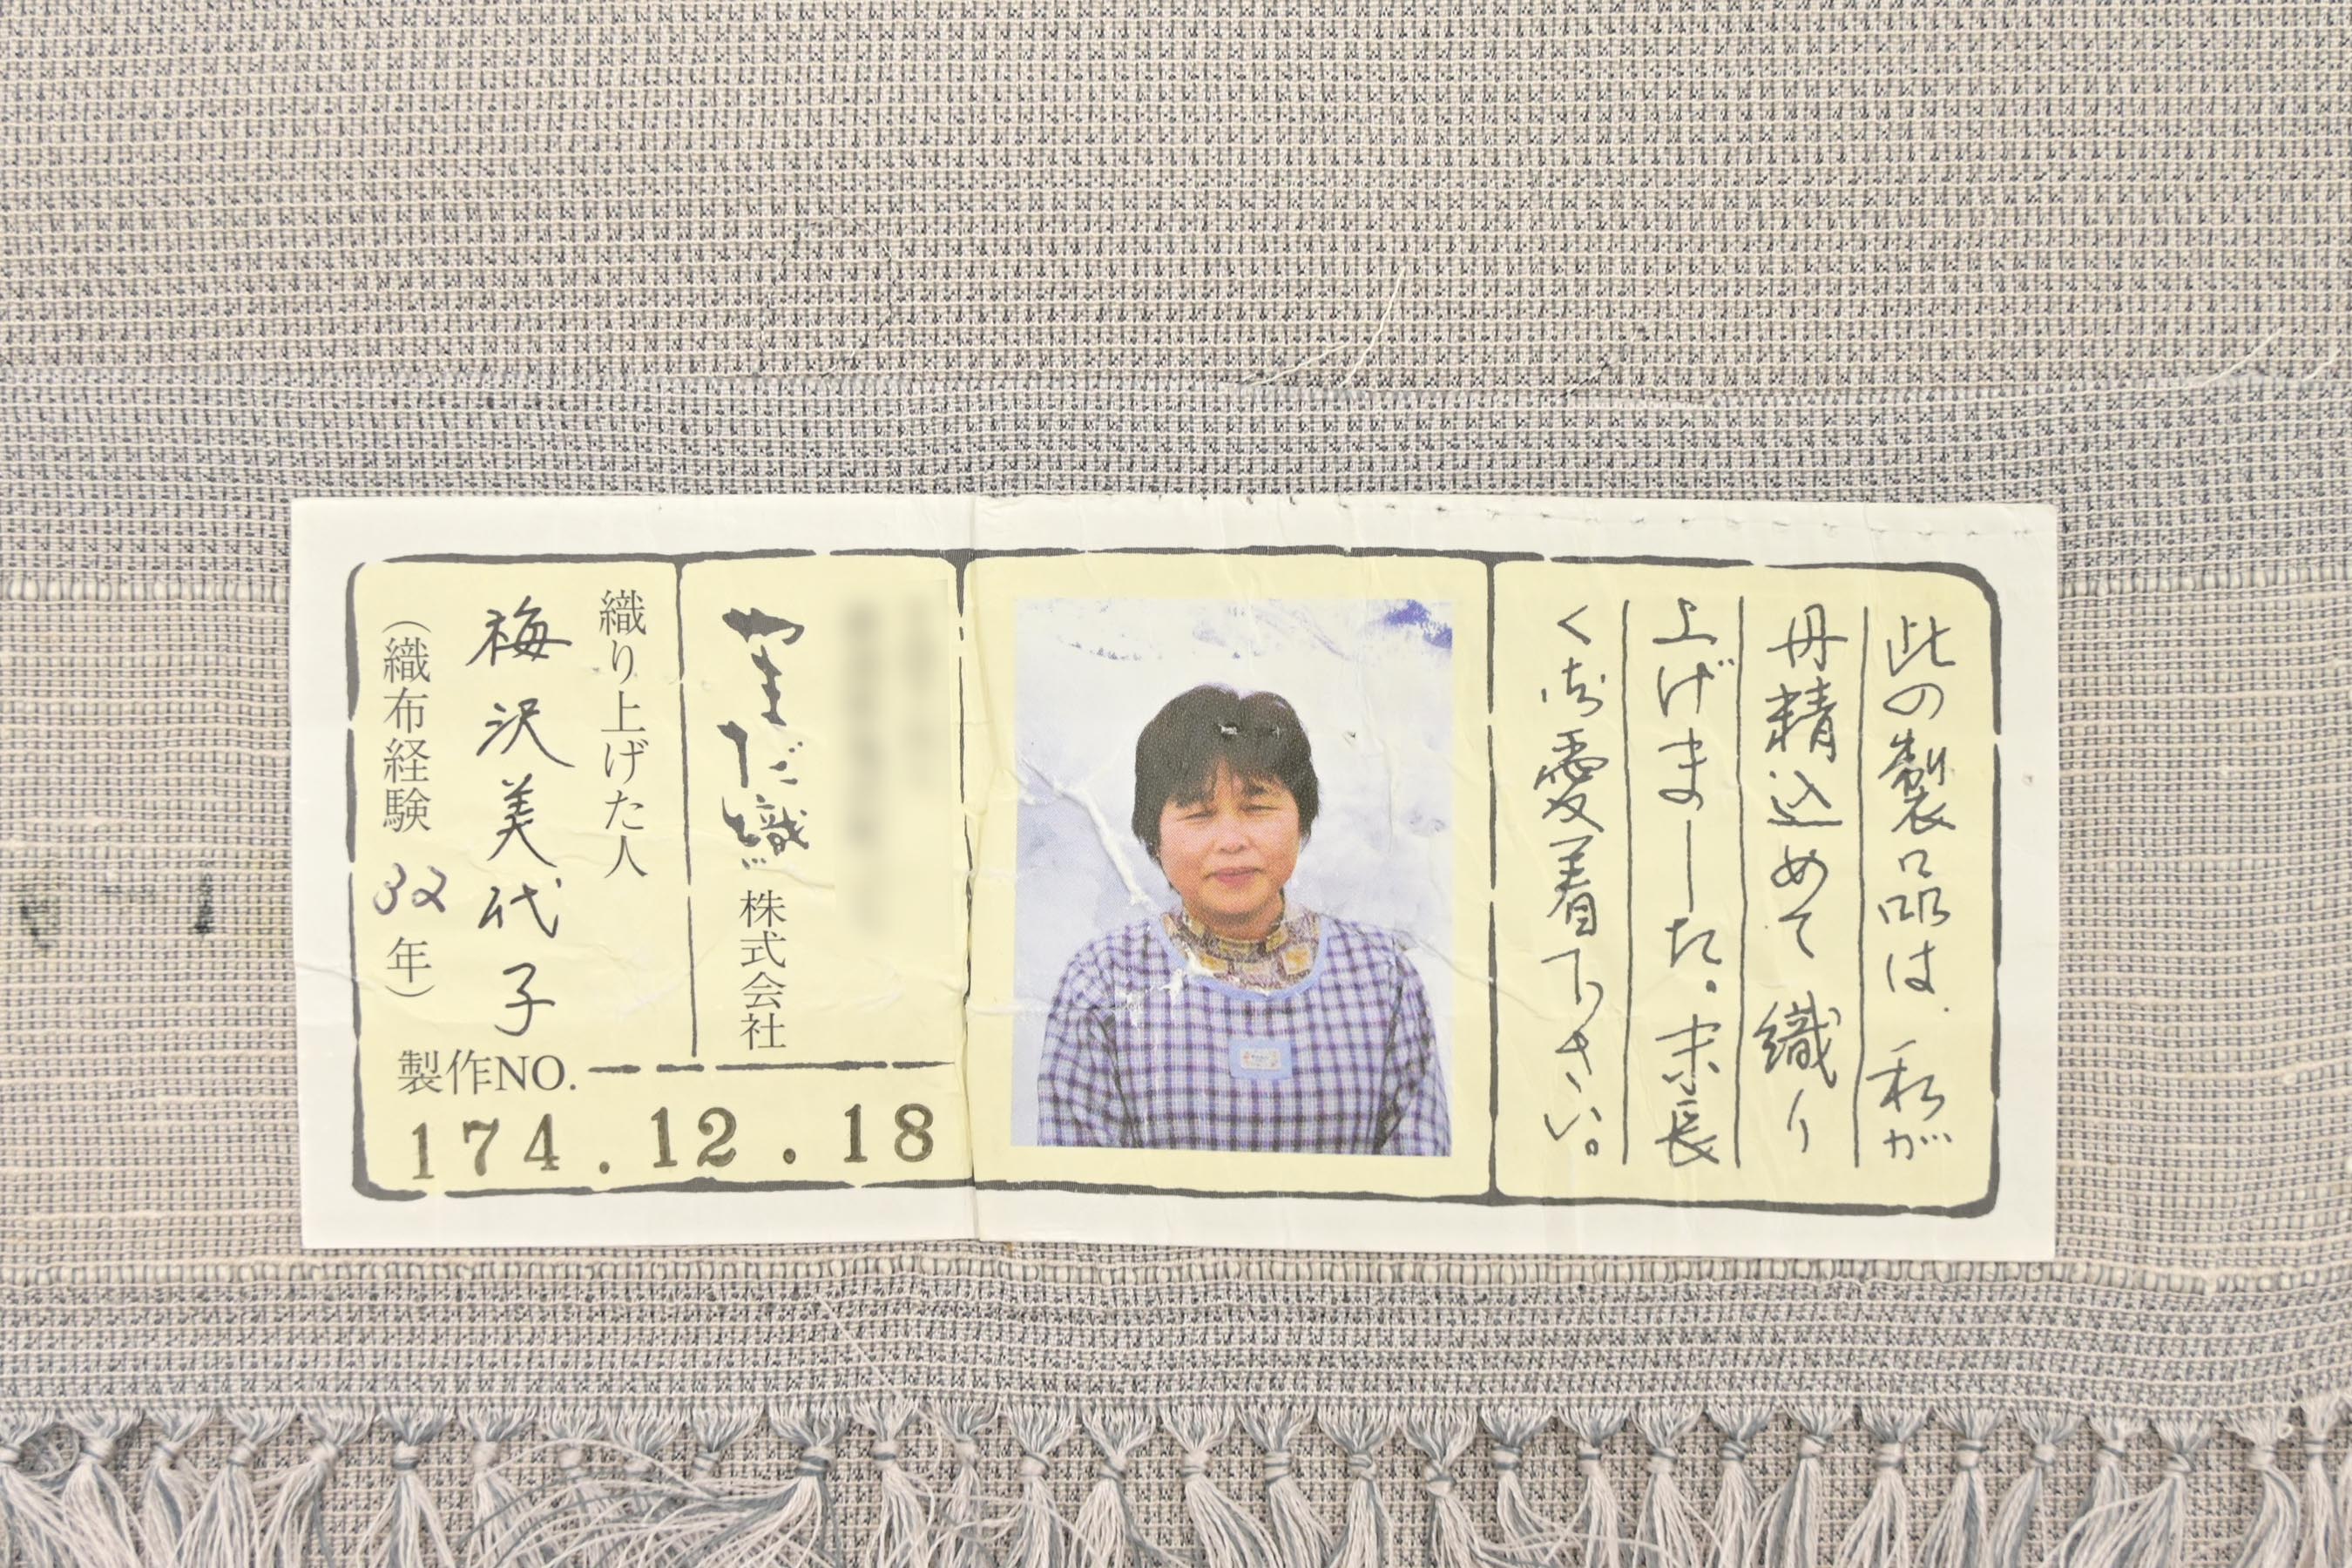 此の製品は、私が
丹精込めて織り
上げました。末長
く御愛着下さい。
やまだ織
株式会社
織り上げた人
梅沢美代子
（織布経験 32年）
製作NO.
174.12.18